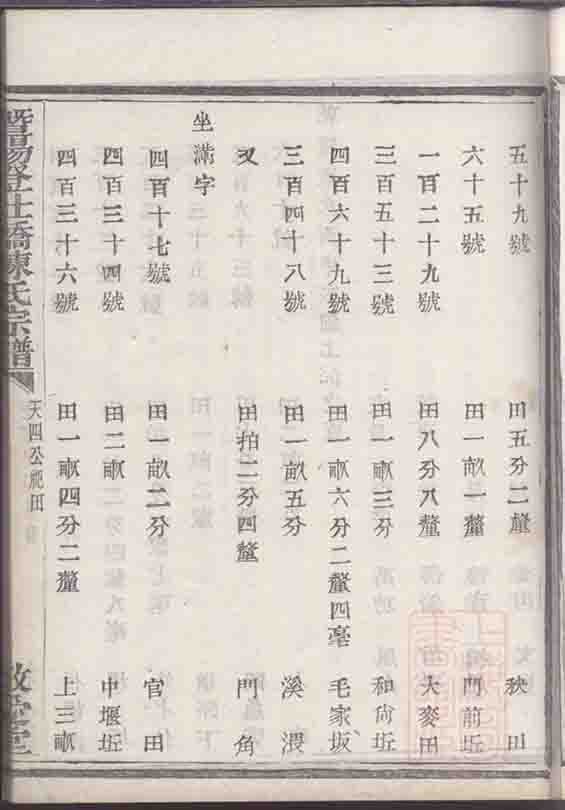 五十九號 田五分二釐 秧田
六十五號 田一畝一釐 門前坵
一百二十九號 田八分八釐 大麥田
三百五十三號 田一畝三分 和尚坵
四百六十九號 田一畝六分二釐四毫 毛家坂
三百四十八號 田一畝五分 溪湋
又 田拍二分四釐 門角
坐满字
四百十七號 田一畝二分 官田
四百三十四號 田二畝 中堰坵
四百三十六號 田一畝四分二釐 上三畝
暨陽登仕橋陳氏宗譜 天四公祀田